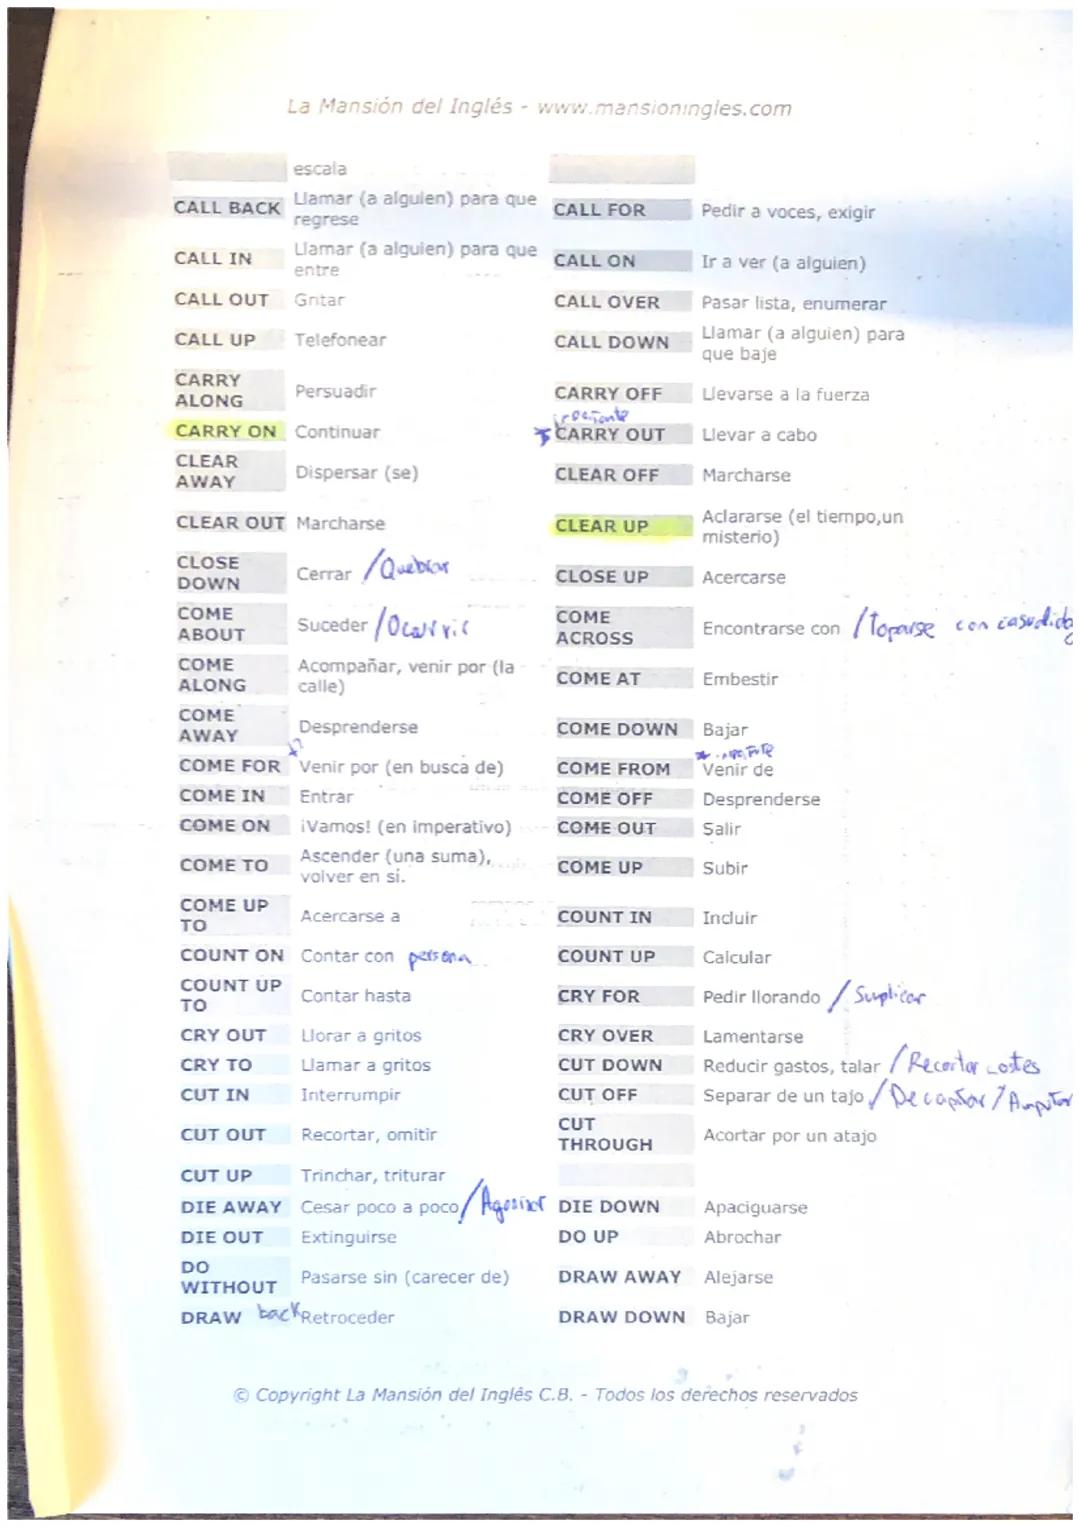 La Mansión del Inglés - www.mansioningles.com
escala
CALL BACK Llamar (a alguien) para que regrese CALL FOR Pedir a voces, exigir
CALL IN Llamar (a alguien) para que entre CALL ON Ir a ver (a alguien)
CALL OUT Gritar CALL OVER Pasar lista, enumerar
CALL UP Telefonear CALL DOWN Llamar (a alguien) para que baje
CARRY ALONG Persuadir CARRY OFF Llevarse a la fuerza
CARRY ON Continuar CARRY OUT Llevar a cabo
CLEAR AWAY Dispersar (se) CLEAR OFF Marcharse
CLEAR OUT Marcharse CLEAR UP Aclararse (el tiempo,un misterio)
CLOSE DOWN Cerrar /Quebrar CLOSE UP Acercarse
COME ABOUT Suceder /Ocurrir COME ACROSS Encontrarse con /toparse con
COME ALONG Acompañar, venir por (la calle) COME AT Embestir
COME AWAY Desprenderse COME DOWN Bajar
COME FOR Venir por (en busca de) COME FROM Venir de
COME IN Entrar COME OFF Desprenderse
COME ON ¡Vamos! (en imperativo) COME OUT Salir
COME TO Ascender (una suma), volver en sí. COME UP Subir
COME UP TO Acercarse a COUNT IN Incluir
COUNT ON Contar con persona COUNT UP Calcular
COUNT UP TO Contar hasta CRY FOR Pedir llorando / Suplicar
CRY OUT Llorar a gritos CRY OVER Lamentarse
CRY TO Llamar a gritos CUT DOWN Reducir gastos, talar /Recortar costes
CUT IN Interrumpir CUT OFF Separar de un tajo /
CUT OUT Recortar, omitir CUT THROUGH Acortar por un atajo
CUT UP Trinchar, triturar
DIE AWAY Cesar poco a poco /Agonizar DIE DOWN Apaciguarse
DIE OUT Extinguirse DO UP Abrochar
DO WITHOUT Pasarse sin (carecer de) DRAW AWAY Alejarse
DRAW back Retroceder DRAW DOWN Bajar
© Copyright La Mansión del Inglés C.B. - Todos los derechos reservados